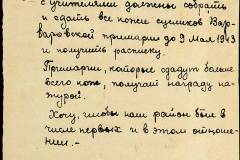 с учителями должны собрать
и сдать все кожи сусликов Вар-
варовской примарии до 9 мая 1943
и получить расписку.
Примарии, которые сдадут больше
всего кож, получат награду на-
турой.
Хочу, чтобы наш район был в
числе первых и в этом отноше-
нии.-